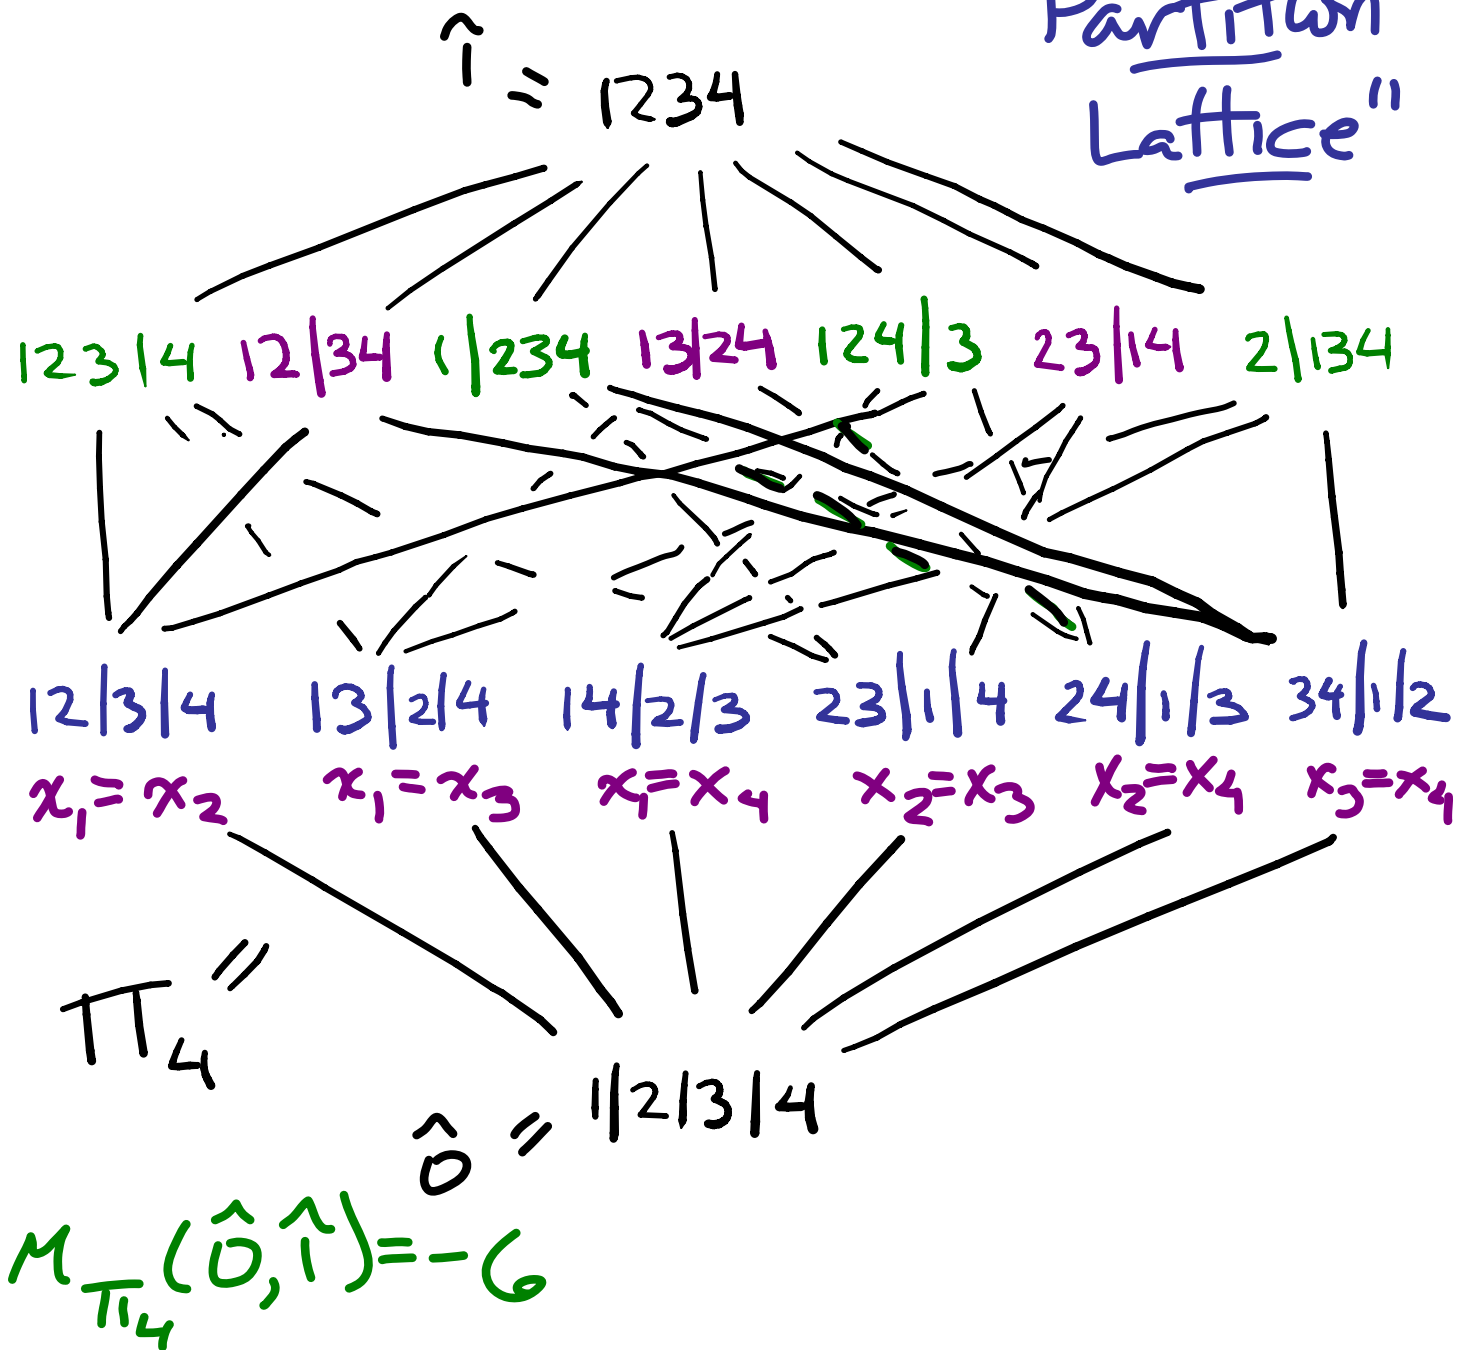 Partition
Lattice"
1̂ = 1234
123|4 12|34 1|234 13|24 124|3 23|14 2|134
12|3|4 13|2|4 14|2|3 23|1|4 24|1|3 34|1|2
x₁=x₂ x₁=x₃ x₁=x₄ x₂=x₃ x₂=x₄ x₃=x₄
Π₄"
0̂ = 1|2|3|4
μ_Π₄(0̂,1̂)=-6